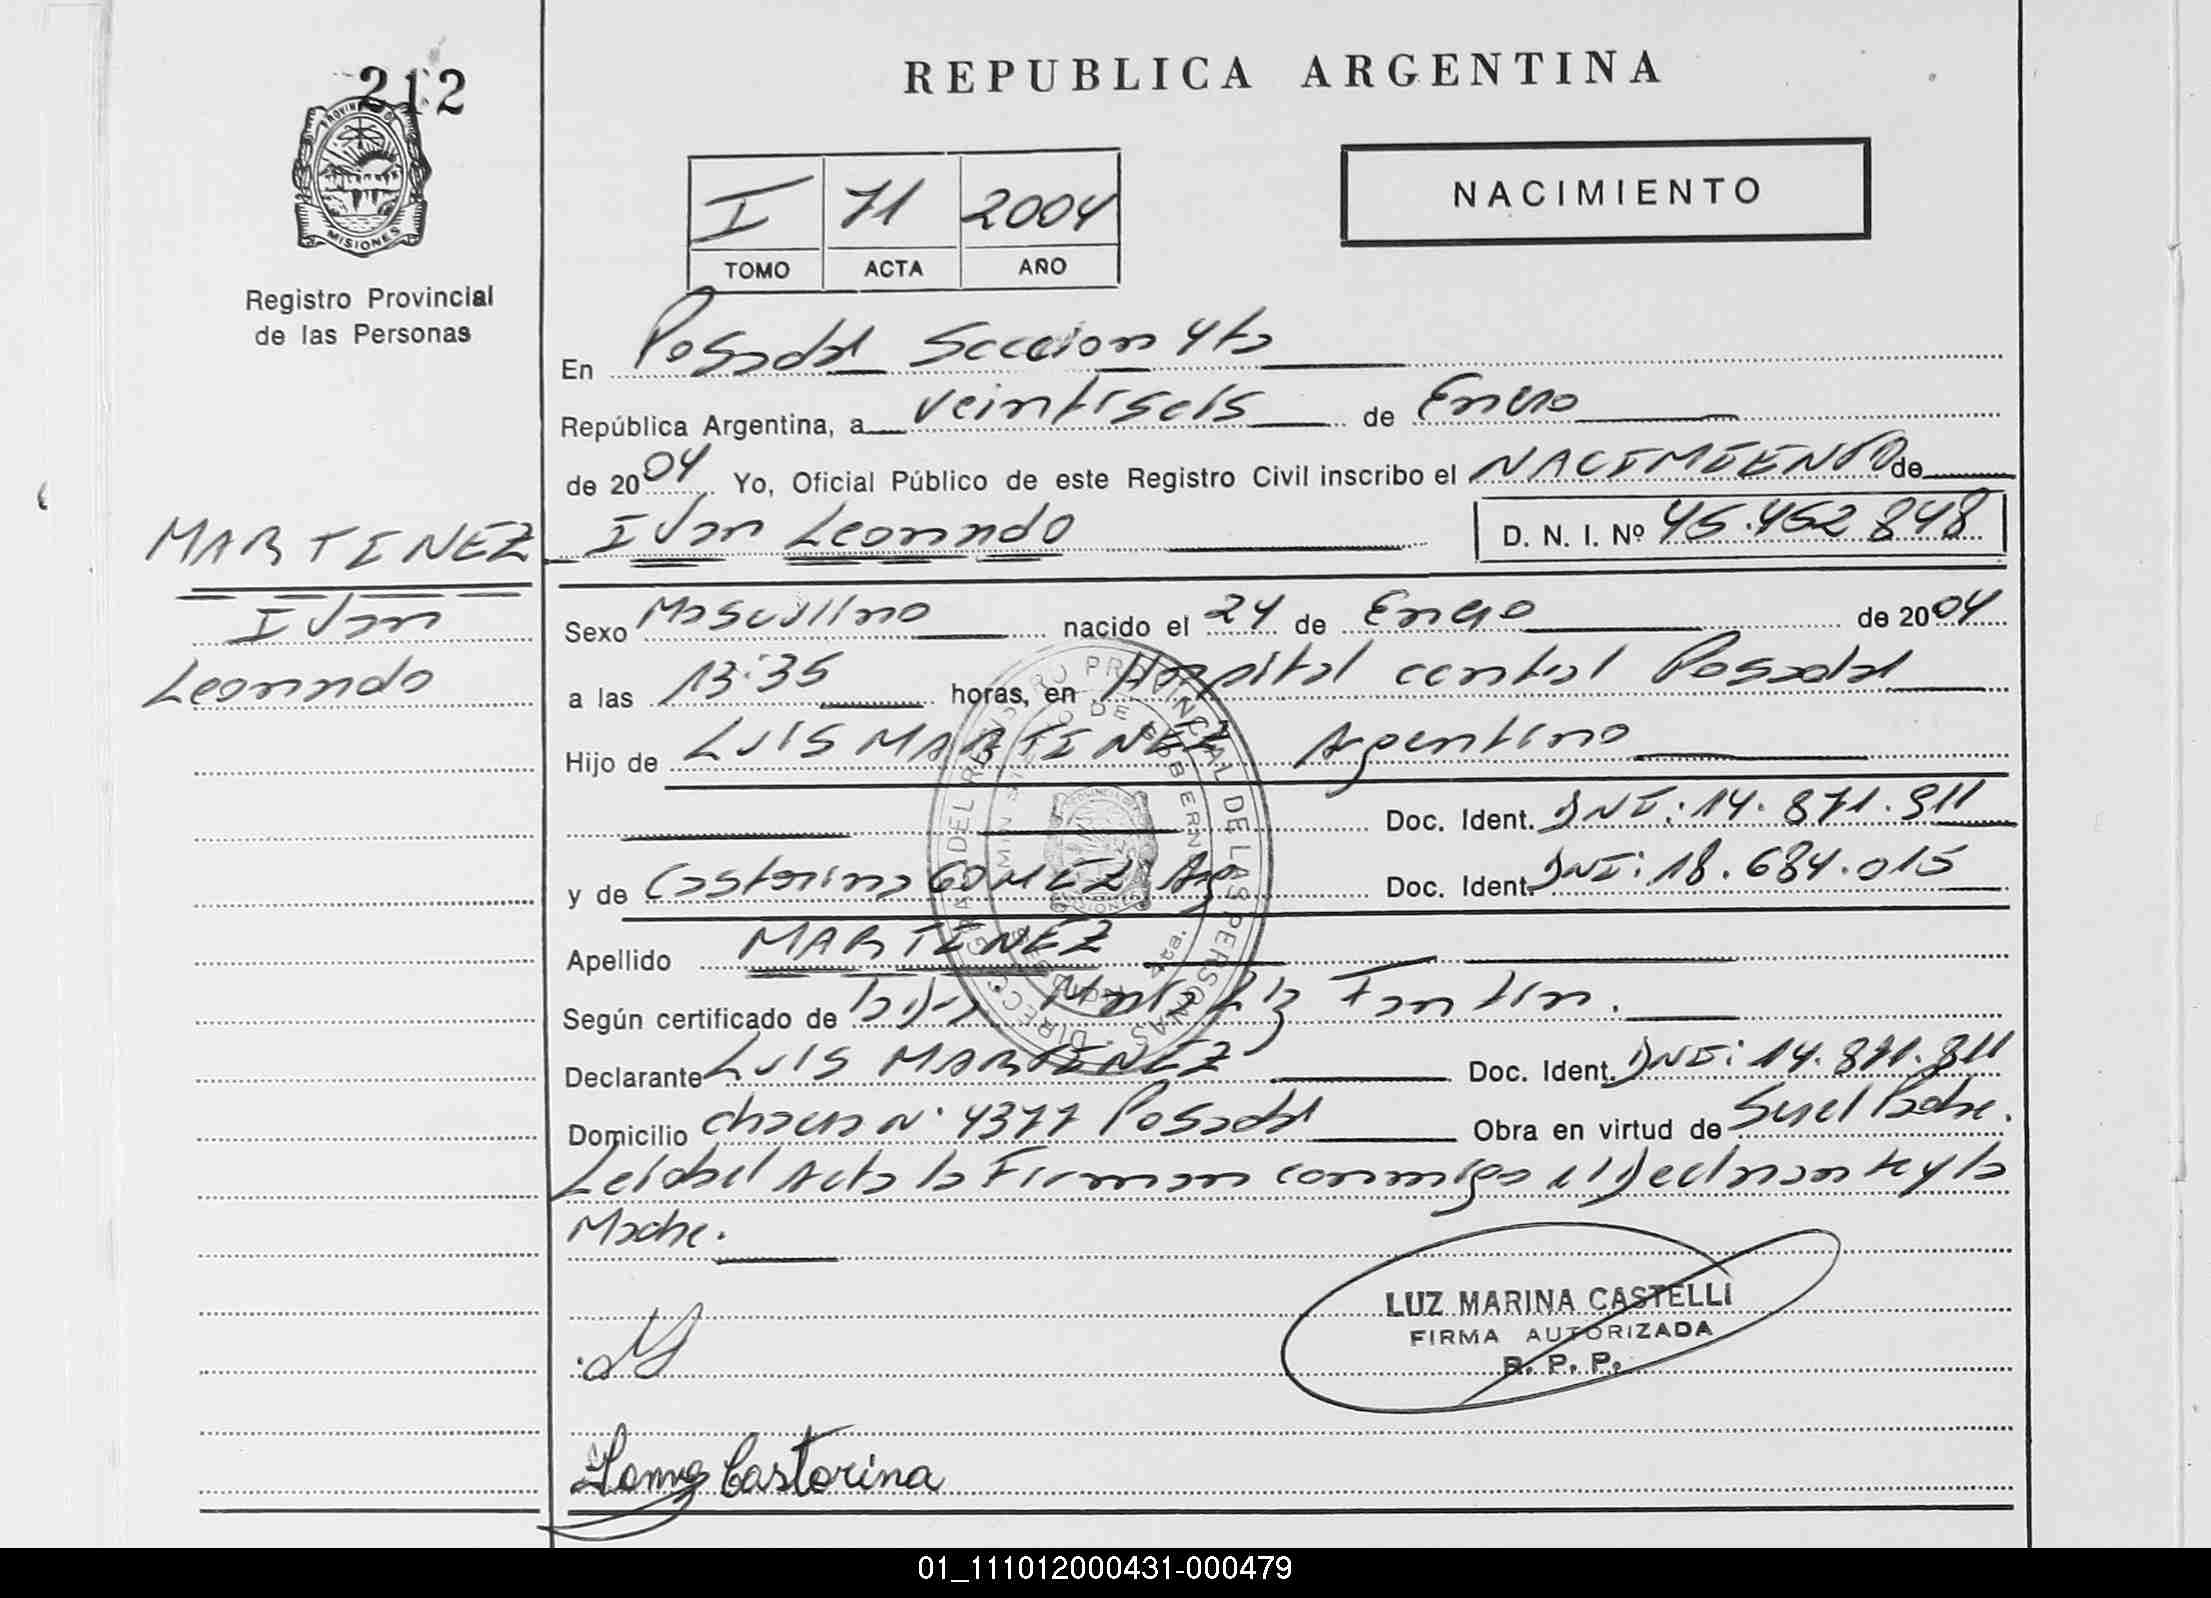 212
REPUBLICA ARGENTINA
PROVINCIA DE
MISIONES
Registro Provincial
de las Personas
I 71 2004
TOMO ACTA AÑO
NACIMIENTO
En Posadas Seccion 4ta
República Argentina, a veintiseis de Enero
de 2004 Yo, Oficial Público de este Registro Civil inscribo el NACIMIENTO de
MARTINEZ
Ivan
Leonardo
Ivan Leonardo D. N. I. Nº 45.452 848
Sexo Masculino nacido el 24 de Enero de 2004
a las 13:35 horas, en Hospital central Posadas
Hijo de LUIS MARTINEZ Argentino
Doc. Ident. DNI: 14.871.911
y de Castorina GOMEZ Arg Doc. Ident. DNI: 18.684.015
Apellido MARTINEZ
Según certificado de Fantin.
Declarante LUIS MARTINEZ Doc. Ident. DNI: 14.871.911
Domicilio chacra N· 4377 Posadas Obra en virtud de Ser el Padre.
Leida el Acta la Firman conmigo el Declarante y la
Madre.
DIRECC. GRAL. DEL REGISTRO PROVINCIAL DE LAS PERSONAS
MINISTERIO DE GOBIERNO
LUZ MARINA CASTELLI
FIRMA AUTORIZADA
R. P. P.
Castorina
01_111012000431-000479